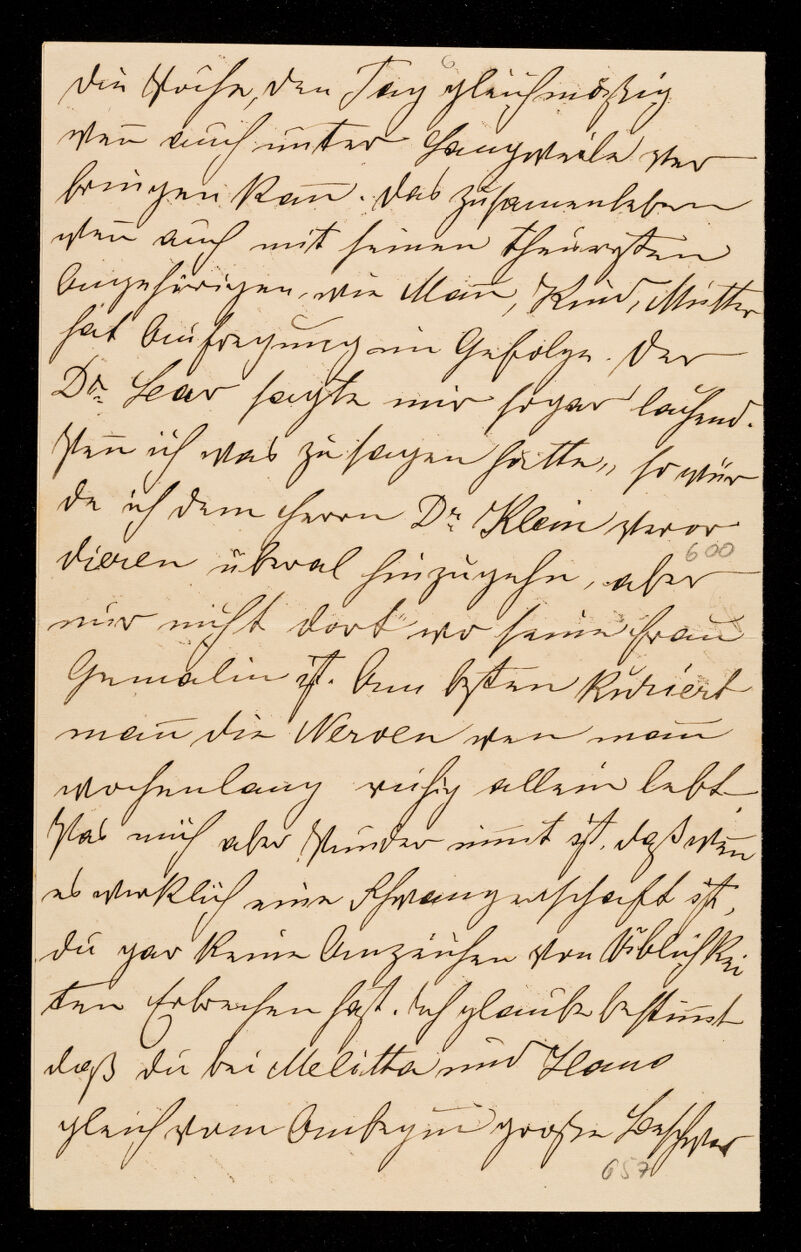 die Woche, den Tag gleichmäßig
wen̄ auch unter Langweile ver
bringen kan̄. Das zusamenleben
wen̄ auch mit seinen theuersten
Angehörigen, wie Man̄, Kind, Mutter
hat Aufregung im Gefolge. Der
Dr. Lear sagte mir sogar lachend.
Wen̄ ich was zu sagen hätte, so wür
de ich dem Herrn Dr. Klein veror
dieren überal hinzugehn, aber
600
nur nicht dort wo seine Frau
Gemalin ist. Am besten kuriert
man̄ die Nerven wen man̄
wochenlang ruhig allein lebt
Was mich aber Wunder nim̄t ist, daß wen̄
es wirklich eine Schwangerschaft ist,
du gar keine Anzeichen von Üblichkei
ten Erbrechen hast. Ich glaube bestim̄t
daß du bei Melitta und Hans
gleich vom Anbegin̄ große Beschwer
657